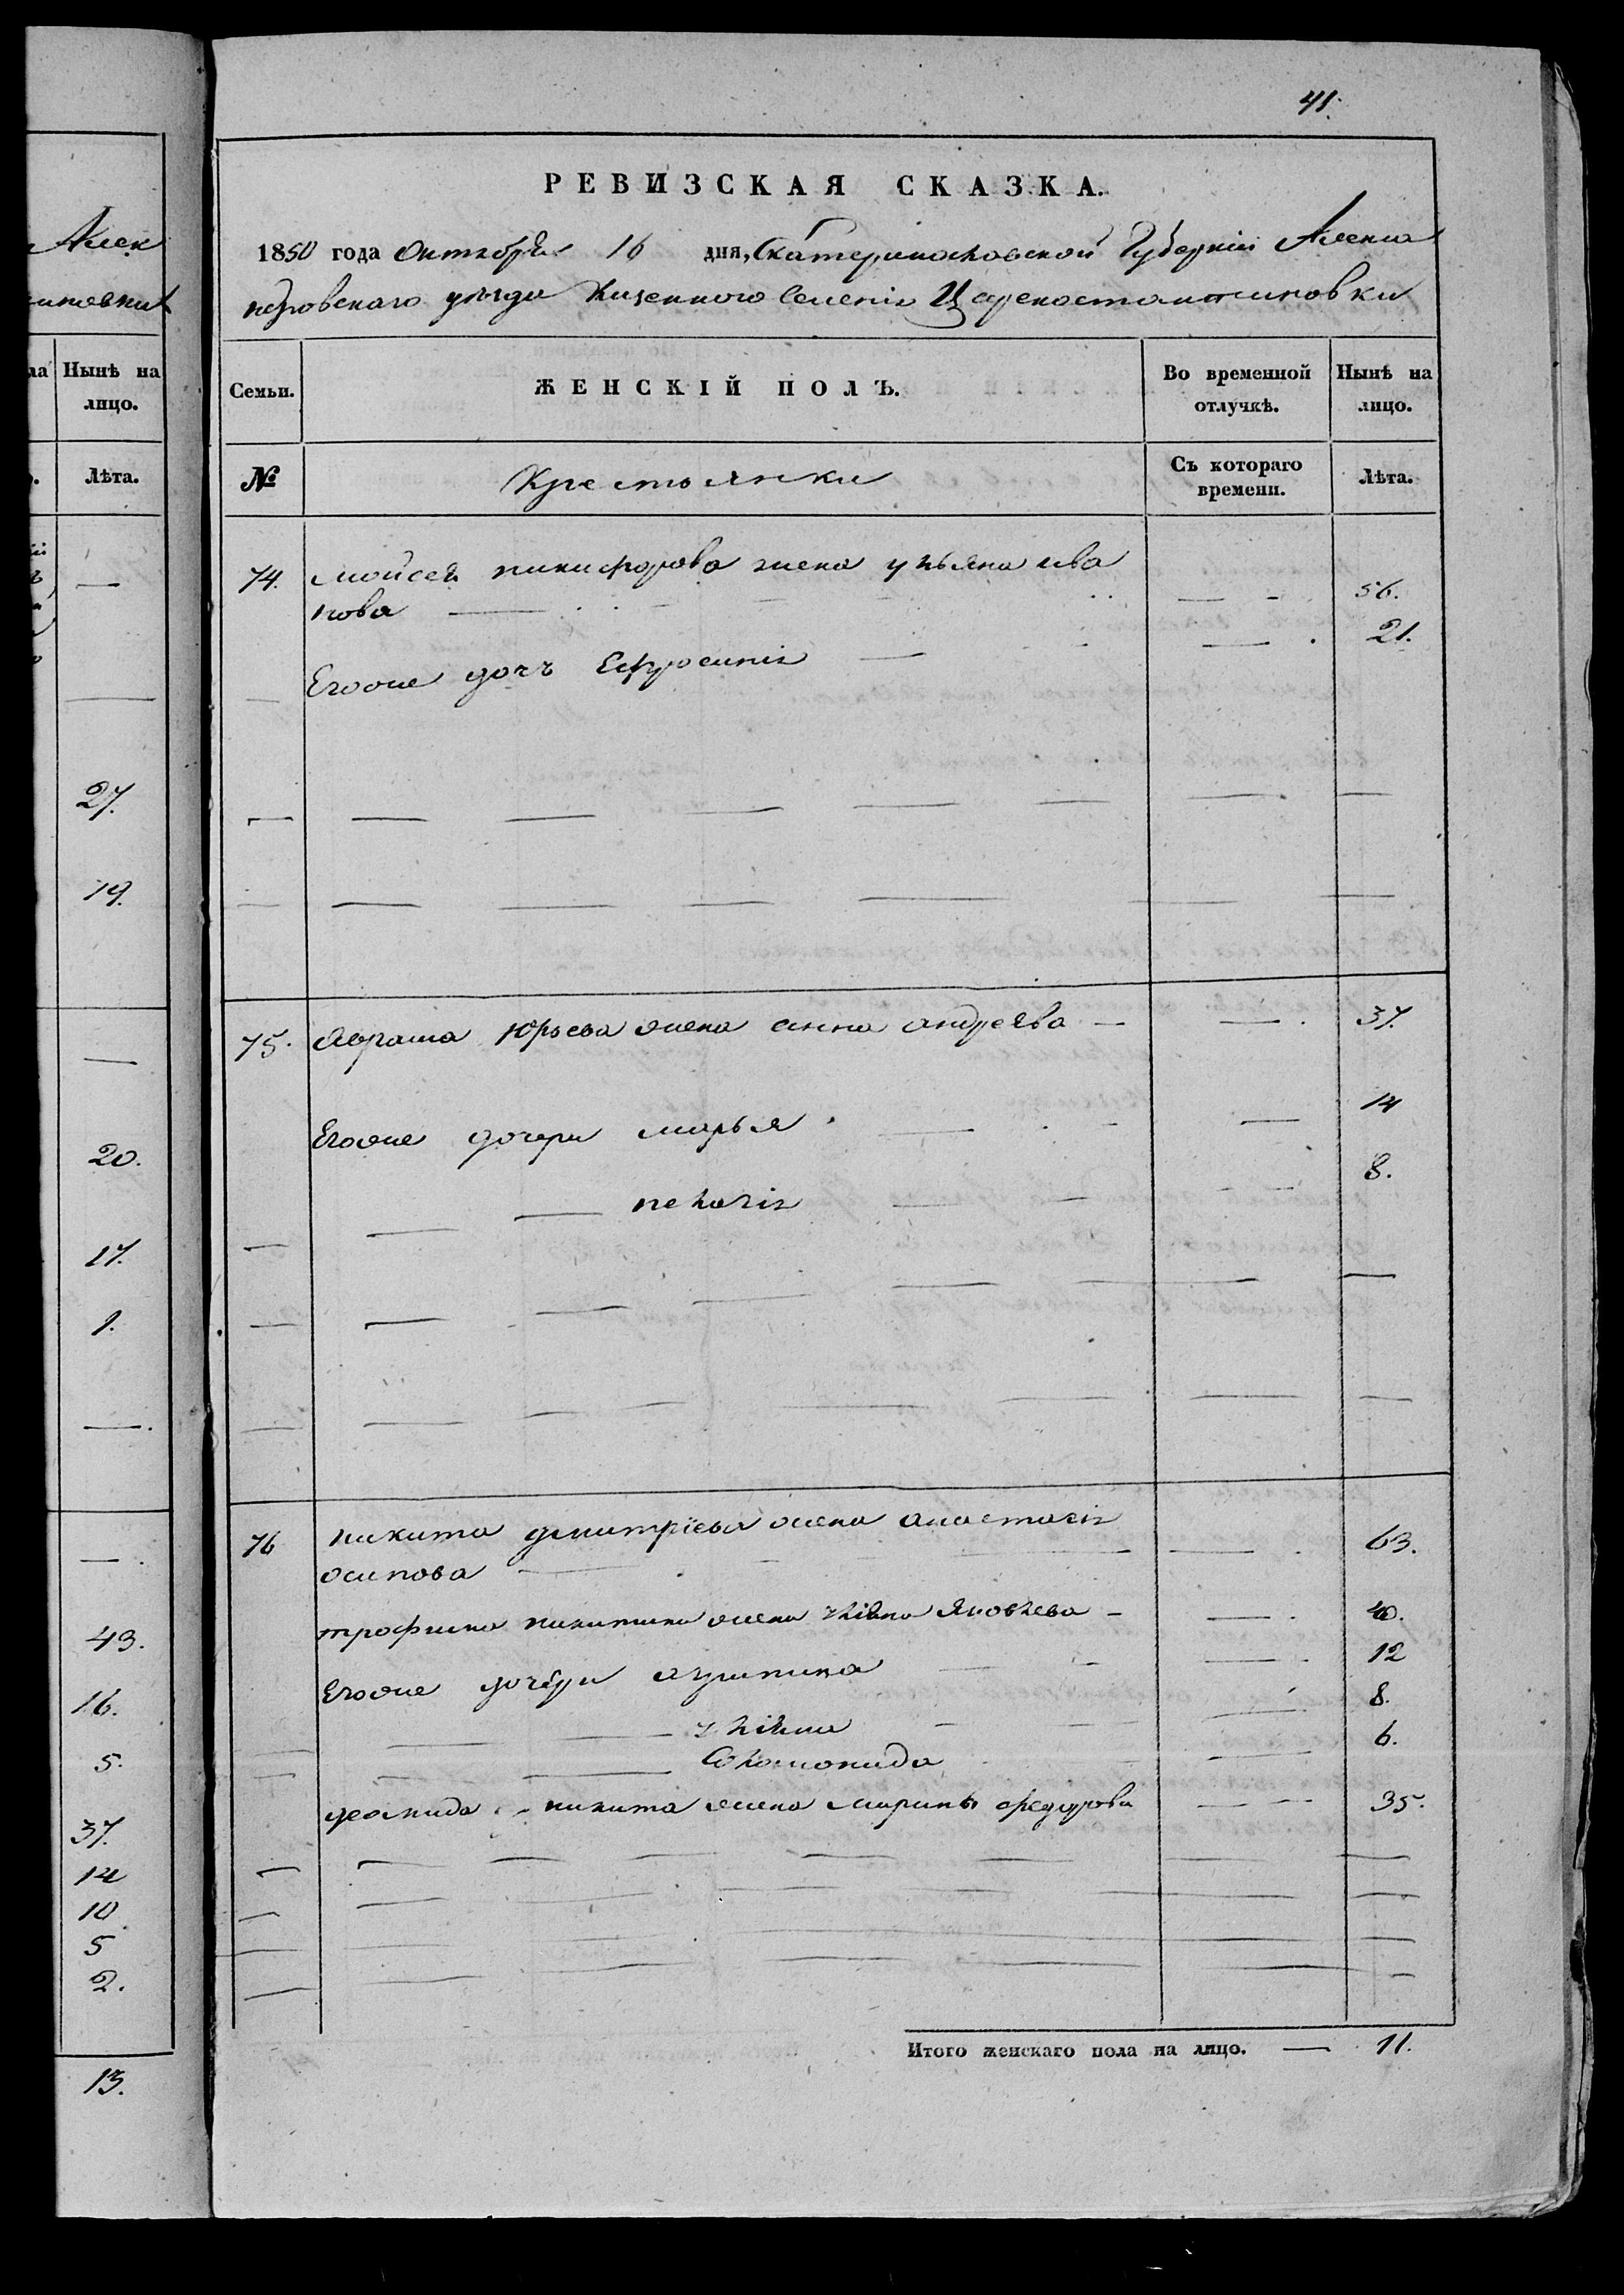 41.
РЕВИЗСКАЯ СКАЗКА.
1850 года Октября 16 дня, Екатеринославской Губерніи Алекса
ндровскаго уезда Казенного Селенія Цареконстантиновки
Семьи.
ЖЕНСКІЙ ПОЛЪ.
Во временной отлучкѣ.
Нынѣ на лицо.
№
Крестьянки
Съ котораго времени.
Лѣта.
74. Мойсея никифорова жена ульяна ива
нова — 56.
Егоже дочь Ефросинія — 21.
75. Аврама Юрьева жена анна андреева — 37.
Егоже дочери марья — 14
пелагія — 8.
76 никита дмитріева жена анастасія
осипова — 63.
трофима никитина жена улiяна Яковлева — 40.
Егоже дочери агрипина — 12
улiяна — 8.
Соломонида — 6.
никита жена марина федорова — 35.
Итого женскаго пола на лицо. — 11.
Алек
Нынѣ на лицо.
Лѣта.
27.
19.
20.
17.
1.
43.
16.
5.
37.
14
10
5
2.
13.